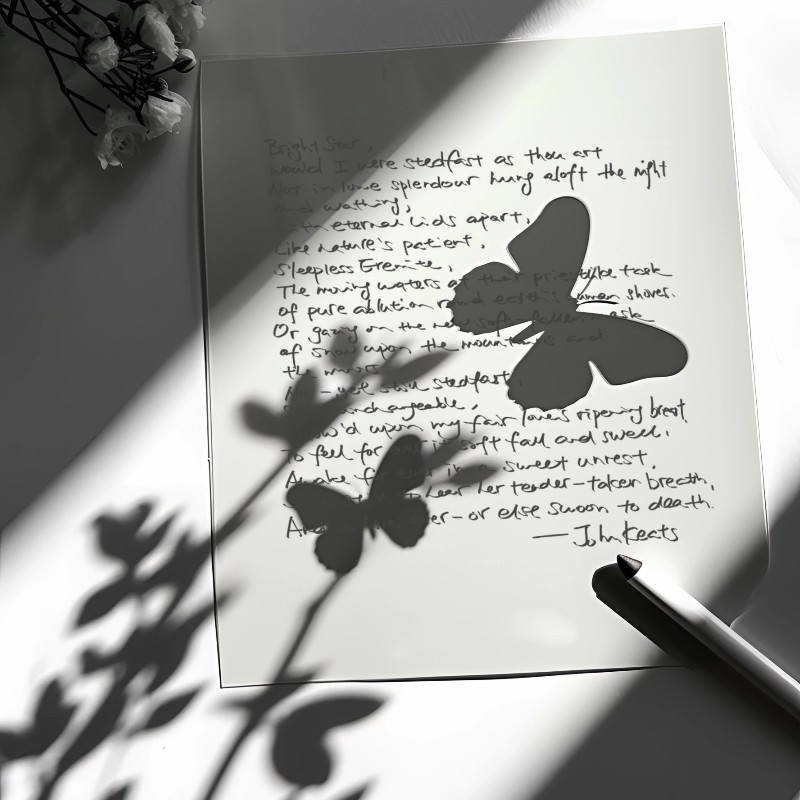 Bright Star,
would I were stedfast as thou art
Not in lone splendour hung aloft the night
and wathing,
with eternal lids apart,
Like nature's patient,
Sleepless Eremite,
The moving waters at their priestlike task
of pure ablution round earth's human shores.
Or gazing on the new soft-fallen mask
of snow upon the mountains and
the moors
No-not still stedfast,
unchangeable,
Pillow'd upon my fair love's ripening breast
To fell for ever it soft fall and swell,
Awake for ever in a sweet unrest,
to hear her tender-taken breath,
And ever-or else swoon to death.
—John Keats